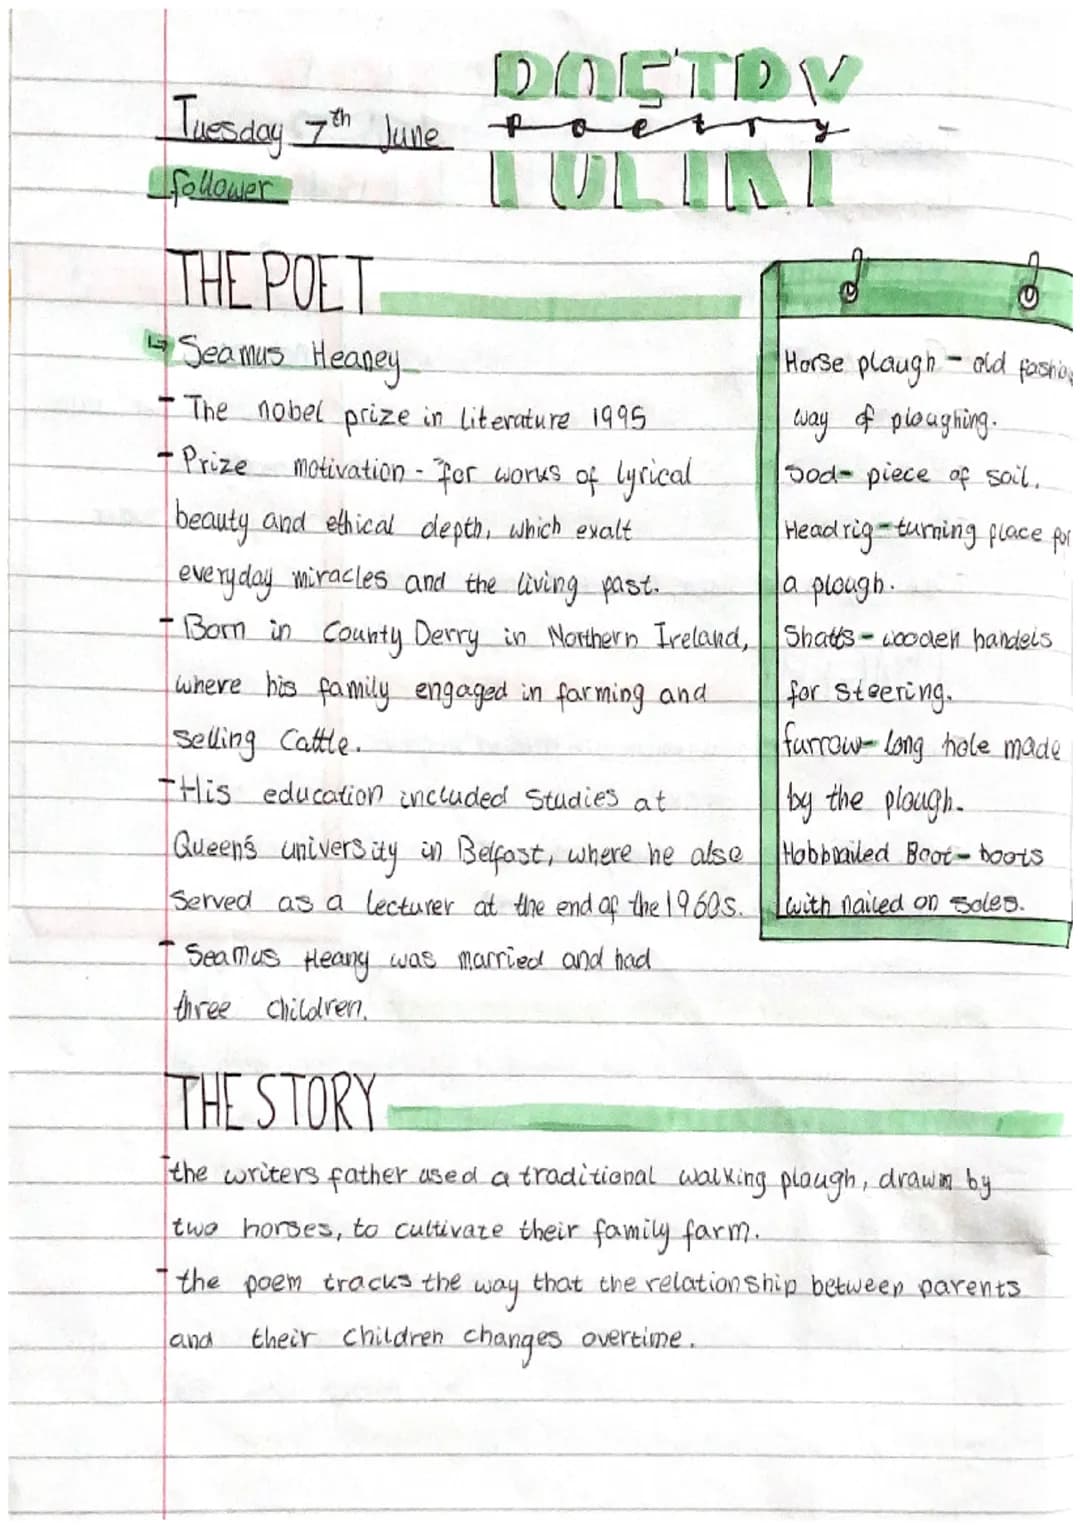 POETRY
Tuesday 7th June
poetry
follower
THE POET
↳ Seamus Heaney
- The nobel prize in literature 1995
- Prize motivation - "for works of lyrical
beauty and ethical depth, which exalt
everyday miracles and the living past.
- Born in County Derry in Northern Ireland,
where his family engaged in farming and
selling Cattle.
- His education included Studies at
Queen's university in Belfast, where he also
Served as a lecturer at the end of the 1960s.
- Seamus Heany was married and had
three children.
Horse plough - old fashio
way of ploughing.
Sod- piece of soil.
Headrig - turning place for
a plough.
Shatts - wooden handels
for steering.
furrow- long hole made
by the plough.
Hobbnailed Boot - boots
with nailed on soles.
THE STORY
- the writers father used a traditional walking plough, drawn by
two horses, to cultivate their family farm.
- the poem tracks the way that the relationship between parents
and their children changes overtime.